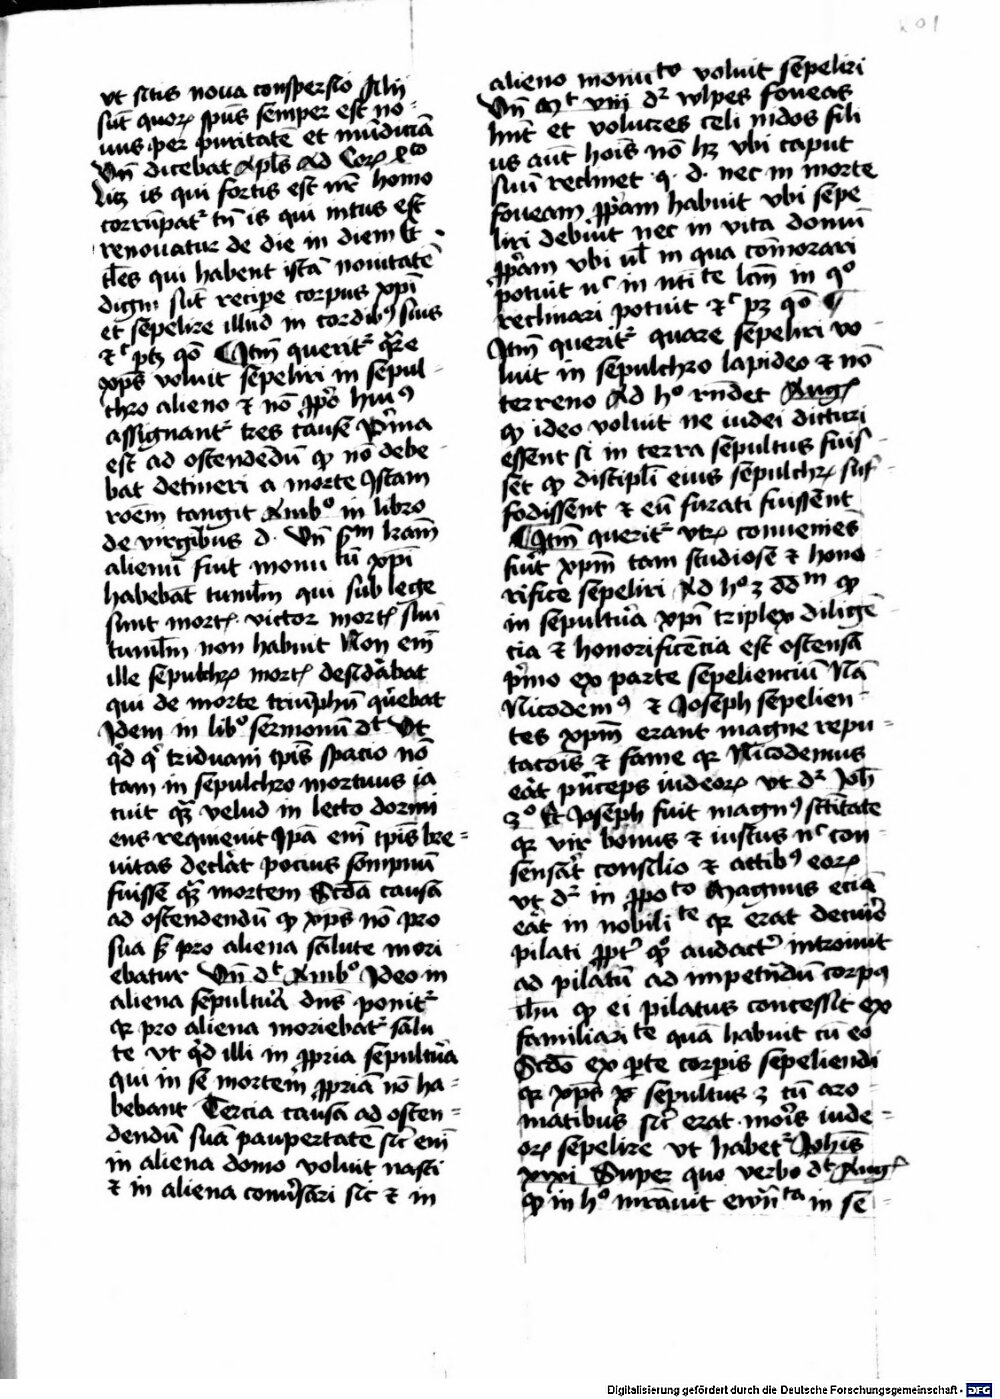 vt sitis nova conspersio Illi
sūt quorꝝ spūs semper est no-
uus per puritatē et mūdiciā
Vn̄ dicebat apl̄s ad Corꝝ
is qui foris est nr̄ homo
corrūpatᷣ tn̄ is qui intus est
renouatur de die in diem Et
tl̄es qui habent istā nouitatē
digni sūt recipe corpus xp̄i
et sepelire illud in cordibꝰ suis
⁊c̄ ptꝫ qō ¶ Itm̄ queritᷣ qͣre
xp̄s voluit sepeliri in sepul-
chro alieno ⁊ nō ꝓp̄o huiꝰ
assignantᷣ tres cause Pͥma
est ad ostendēdū ꝙ nō debe-
bat detineri a morte Istam
roēm tangit Ambͦ in libro
de virgībus d. Vn̄ sᵐ lr̄am
alienū fuit monutū xp̄i
habebāt tuml̄m qui sub lege
sunt mortꝭ victor mortꝭ suū
tuml̄m non habuit Non em̄
ille sepulchrꝝ mortꝭ
qui de morte triūphū querebat
Idem in libͦ sermonū dᵗ Vt
qͥd qͥ triduani tp̄is spacio nō
tam in sepulchro mortuus ia-
cuit qͣꝫ velud in lecto dormi
ens requieuit Ip̄a em̄ tp̄is bre-
uitas declarat pocius sompnū
fuisse qͣꝫ mortem Scd̄a causā
ad ostendendū ꝙ xp̄s nō pro
sua sꝫ pro aliena salute mori
ebatur Vn̄ dᵗ Ambͦ Ideo in
aliena sepultura dn̄s ponitᷣ
qꝛ pro aliena moriebatᷣ salu
te vt qͥd illi in ꝓpria sepultura
qui in se mortem ꝓpriā nō ha-
bebant Tercia causā ad osten-
dendū suā paupertatē sic em̄
in aliena domo voluit nasci
⁊ in aliena sic ⁊ in
alieno monutͦ voluit sepeliri
Vn̄ Mᵗ viij dᷣ wlpes foueas
hn̄t et volucres celi nidos fili
us aūt hoīs nō hꝫ vbi caput
suū reclinet .q. d. nec in morte
foueam ꝓpͥam habuit vbi sepe
liri debuit nec in vita domū
ꝓpͥam vbi vl̄ in qua cōmorari
potuit nͨ in lcm̄ in qͦ
reclinari potuit ⁊c̄ pꝫ qō ¶
Itm̄ queritᷣ quare sepeliri vo-
luit in sepulchro lapideo ⁊ nō
terreno Ad hͦ rn̄det Augꝰ
ꝙ ideo voluit ne iudei dicturi
essent si in terra sepultus fuis-
set ꝙ discipl̄i eius sepulchrꝝ suf-
fodissent ⁊ eū furati fuissent
¶ Itm̄ queritᷣ vtrꝝ conueniēs
fuit xp̄m tam studiose ⁊ hono
rifice sepeliri Ad hͦ ꝫ dd̄m ꝙ
in sepultura xp̄i triplex diligē
cia ⁊ honorificēcia est ostensa
pͥmo ex parte sepelienciū Nā
Nicodemꝰ ⁊ Joseph sepelien-
tes xp̄m erant magne repu-
tacoīs ⁊ fame qꝛ Nicodemus
erat pͥnceps iudeorꝝ vt dᷣ Joh̄
3ͦ Et Joseph fuit magnꝰ scītate
qꝛ vir bonus ⁊ iustus nͨ con-
sensat̄ consilio ⁊ actibꝰ eorꝝ
vt dᷣ in ꝓpoᵗͦ Magnus eciā
erat in nobiliᵗᵉ qꝛ erat decurio
pilati ꝓptᷣ qͣ audactᷣ introiuit
ad pilatū ad impetrādū corpꝰ
ih̄u ꝙ ei pilatus concessit ex
familiariᵗᵉ quā habuit cū eo
Scd̄o ex pͣte corpis sepeliendi
qꝛ xp̄s sepultus ꝫ cū aro
matibus sic erat moris iude-
orꝝ sepelire vt habetᷣ Johīs
xxxi Super quo verbo dᵗ Augꝰ
ꝙ in hͦ in se